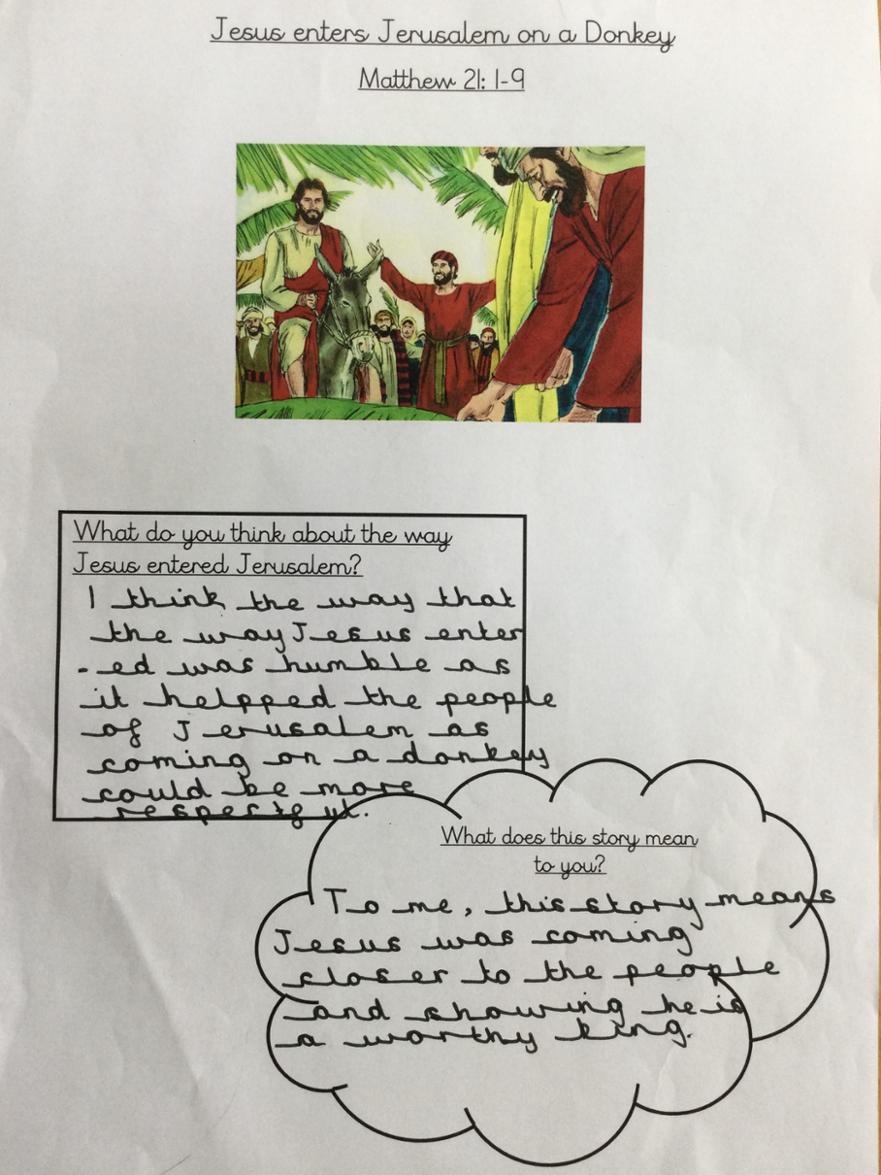 Jesus enters Jerusalem on a Donkey
Matthew 21: 1-9
What do you think about the way
Jesus entered Jerusalem?
I think the way that
the way Jesus enter
-ed was humble as
it helpped the people
of Jerusalem as
coming on a donkey
could be more
respectful.
What does this story mean
to you?
To me, this story means
Jesus was coming
closer to the people
and showing he is
a worthy king.